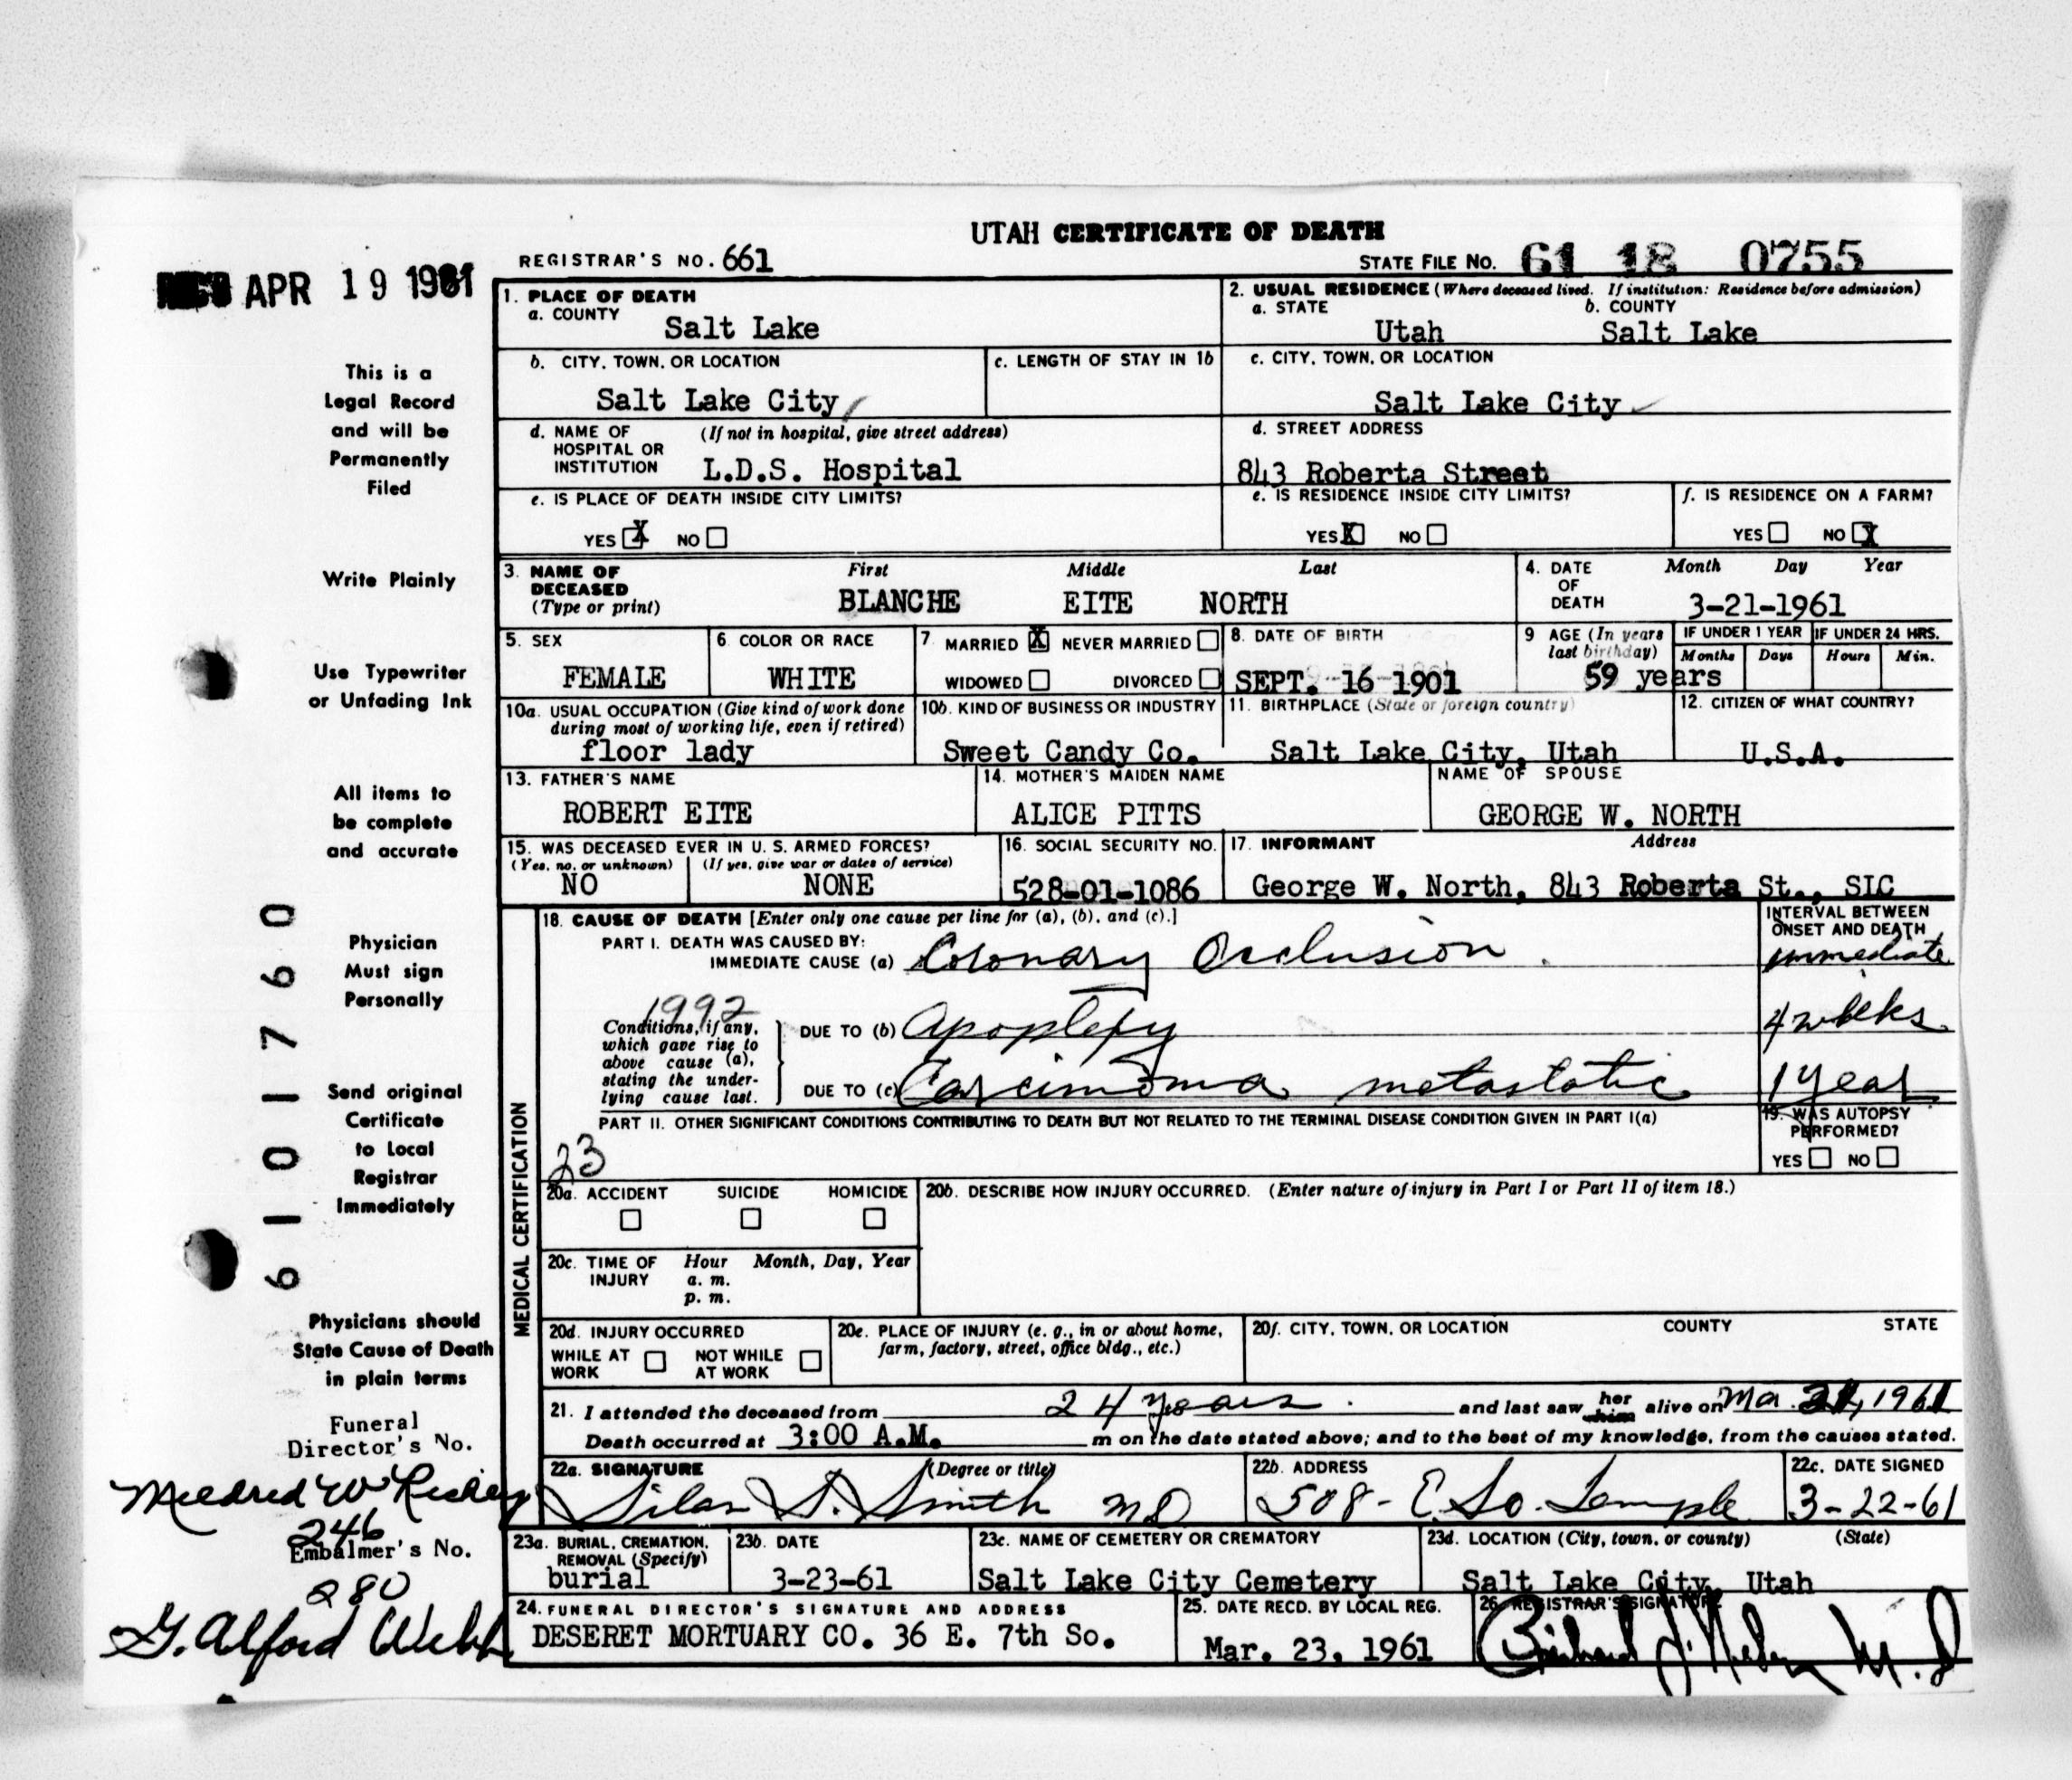 UTAH CERTIFICATE OF DEATH
REGISTRAR'S NO. 661
STATE FILE NO. 61 18 0755
REC'D APR 19 1961
This is a
Legal Record
and will be
Permanently
Filed
Write Plainly
Use Typewriter
or Unfading Ink
All items to
be complete
and accurate
Physician
Must sign
Personally
Send original
Certificate
to Local
Registrar
Immediately
Physicians should
State Cause of Death
in plain terms
Funeral
Director's No.
Mildred W
246
Embalmer's No.
280
G. Alford Webb
6101760
1. PLACE OF DEATH
a. COUNTY
Salt Lake
2. USUAL RESIDENCE (Where deceased lived. If institution: Residence before admission)
a. STATE b. COUNTY
Utah Salt Lake
b. CITY, TOWN, OR LOCATION
Salt Lake City
c. LENGTH OF STAY IN 1b
c. CITY, TOWN, OR LOCATION
Salt Lake City
d. NAME OF (If not in hospital, give street address)
HOSPITAL OR
INSTITUTION L.D.S. Hospital
d. STREET ADDRESS
843 Roberta Street
e. IS PLACE OF DEATH INSIDE CITY LIMITS?
YES X NO
e. IS RESIDENCE INSIDE CITY LIMITS?
YES X NO
f. IS RESIDENCE ON A FARM?
YES NO X
3. NAME OF First Middle Last
DECEASED
(Type or print) BLANCHE EITE NORTH
4. DATE Month Day Year
OF
DEATH 3-21-1961
5. SEX
FEMALE
6. COLOR OR RACE
WHITE
7. MARRIED X NEVER MARRIED
WIDOWED DIVORCED
8. DATE OF BIRTH
SEPT. 16 1901
9 AGE (In years
last birthday)
59 years
IF UNDER 1 YEAR IF UNDER 24 HRS.
Months Days Hours Min.
10a. USUAL OCCUPATION (Give kind of work done
during most of working life, even if retired)
floor lady
10b. KIND OF BUSINESS OR INDUSTRY
Sweet Candy Co.
11. BIRTHPLACE (State or foreign country)
Salt Lake City, Utah
12. CITIZEN OF WHAT COUNTRY?
U.S.A.
13. FATHER'S NAME
ROBERT EITE
14. MOTHER'S MAIDEN NAME
ALICE PITTS
NAME OF SPOUSE
GEORGE W. NORTH
15. WAS DECEASED EVER IN U. S. ARMED FORCES?
(Yes, no, or unknown) (If yes, give war or dates of service)
NO NONE
16. SOCIAL SECURITY NO.
528-01-1086
17. INFORMANT Address
George W. North, 843 Roberta St., SLC
MEDICAL CERTIFICATION
18. CAUSE OF DEATH [Enter only one cause per line for (a), (b), and (c).]
INTERVAL BETWEEN
ONSET AND DEATH
PART I. DEATH WAS CAUSED BY:
IMMEDIATE CAUSE (a) Coronary Occlusion immediate
1992
Conditions, if any,
which gave rise to
above cause (a),
stating the under-
lying cause last.
DUE TO (b) Apoplexy 4 weeks
DUE TO (c) Carcinoma metastatic 1 year
PART II. OTHER SIGNIFICANT CONDITIONS CONTRIBUTING TO DEATH BUT NOT RELATED TO THE TERMINAL DISEASE CONDITION GIVEN IN PART I(a)
23
19. WAS AUTOPSY
PERFORMED?
YES NO
20a. ACCIDENT SUICIDE HOMICIDE
20b. DESCRIBE HOW INJURY OCCURRED. (Enter nature of injury in Part I or Part II of item 18.)
20c. TIME OF Hour Month, Day, Year
INJURY a. m.
p. m.
20d. INJURY OCCURRED
WHILE AT NOT WHILE
WORK AT WORK
20e. PLACE OF INJURY (e. g., in or about home,
farm, factory, street, office bldg., etc.)
20f. CITY, TOWN, OR LOCATION COUNTY STATE
21. I attended the deceased from 24 years and last saw her him alive on Mar. 21, 1961
Death occurred at 3:00 A.M. m on the date stated above; and to the best of my knowledge, from the causes stated.
22a. SIGNATURE (Degree or title)
Silas S. Smith MD
22b. ADDRESS
508 - E. So. Temple
22c. DATE SIGNED
3-22-61
23a. BURIAL, CREMATION,
REMOVAL (Specify)
burial
23b. DATE
3-23-61
23c. NAME OF CEMETERY OR CREMATORY
Salt Lake City Cemetery
23d. LOCATION (City, town, or county) (State)
Salt Lake City, Utah
24. FUNERAL DIRECTOR'S SIGNATURE AND ADDRESS
DESERET MORTUARY CO. 36 E. 7th So.
25. DATE RECD. BY LOCAL REG.
Mar. 23, 1961
26. REGISTRAR'S SIGNATURE
M.D